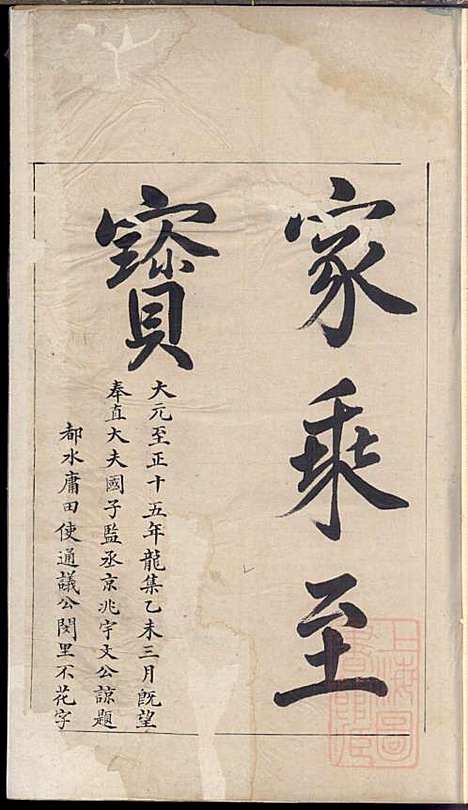 家乘至
寳
大元至正十五年龍集乙未三月旣望
奉直大夫國子監丞京兆宇文公諒題
都水庸田使通議公閔里不花字
上海圖